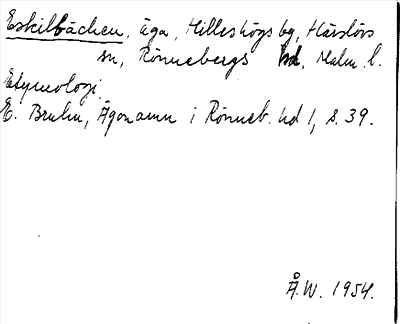 Eskilbächen, äga, Hilleshögs by, Härslövs
sn, Rönnebergs hd, Malm. l.
Etymologi.
E. Bruhn, Ägonamn i Rönneb. hd 1, s. 39.
Å.W. 1954.